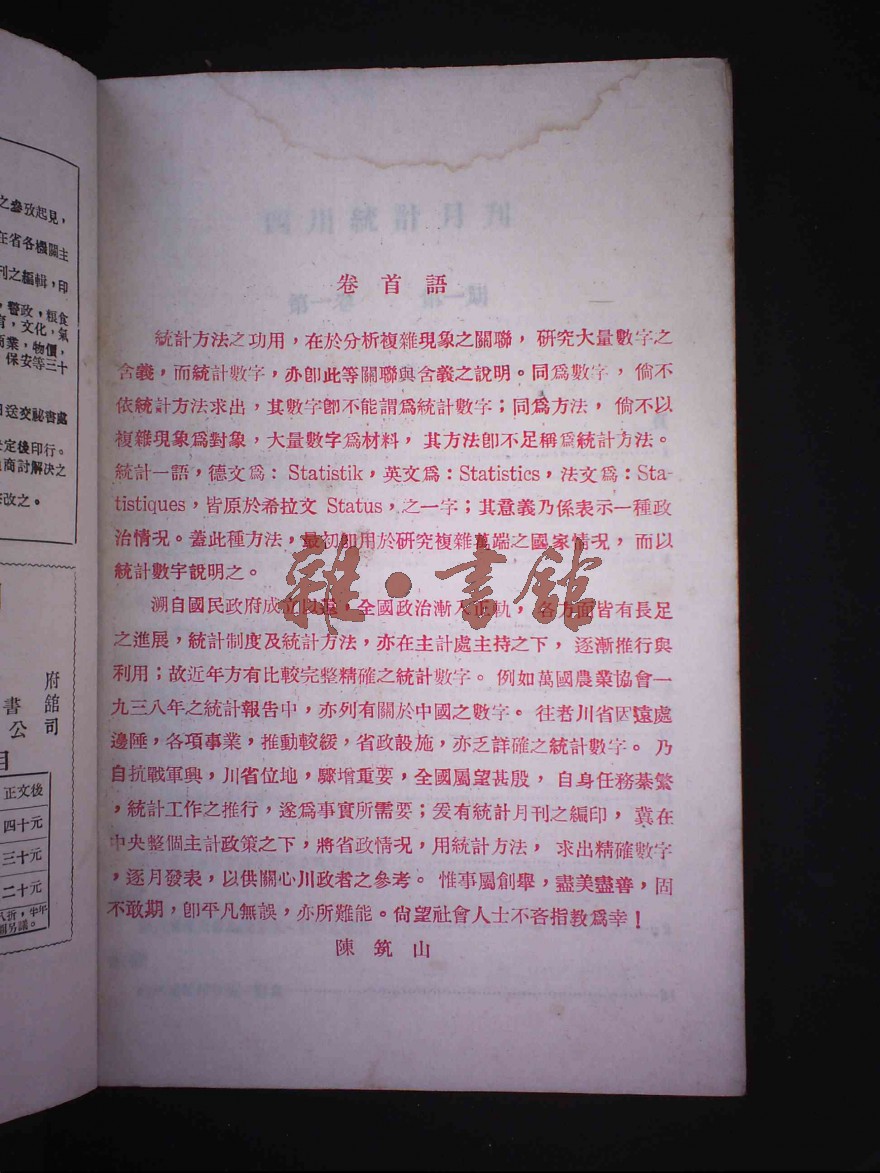 之參攷起見，
在省各機關主
刊之編輯，印
，警政，粮食
育，文化，氣
商業，物價，
保安等三十
日送交祕書處
決定後印行。
商討解決之
修改之。
府
書館
公司
目
正文後
四十元
三十元
二十元
八折，半年
另議。
四川統計月刊
第一卷 第一期
卷首語
統計方法之功用，在於分析複雜現象之關聯，研究大量數字之
含義，而統計數字，亦卽此等關聯與含義之說明。同爲數字，倘不
依統計方法求出，其數字卽不能謂爲統計數字；同爲方法，倘不以
複雜現象爲對象，大量數字爲材料，其方法卽不足稱爲統計方法。
統計一語，德文爲：Statistik，英文爲：Statistics，法文爲：Sta-
tistiques，皆原於希拉文 Status，之一字；其意義乃係表示一種政
治情况。蓋此種方法，最初卽用於研究複雜萬端之國家情况，而以
統計數字說明之。
溯自國民政府成立以還，全國政治漸入正軌，各方面皆有長足
之進展，統計制度及統計方法，亦在主計處主持之下，逐漸推行與
利用；故近年方有比較完整精確之統計數字。例如萬國農業協會一
九三八年之統計報告中，亦列有關於中國之數字。往者川省因遠處
邊陲，各項事業，推動較緩，省政設施，亦乏詳確之統計數字。乃
自抗戰軍興，川省位地，驟增重要，全國屬望甚殷，自身任務綦繁
，統計工作之推行，遂爲事實所需要；爰有統計月刊之編印，冀在
中央整個主計政策之下，將省政情况，用統計方法，求出精確數字
，逐月發表，以供關心川政者之參考。惟事屬創舉，盡美盡善，固
不敢期，卽平凡無誤，亦所難能。尙望社會人士不吝指教爲幸！
陳筑山
雜·書館